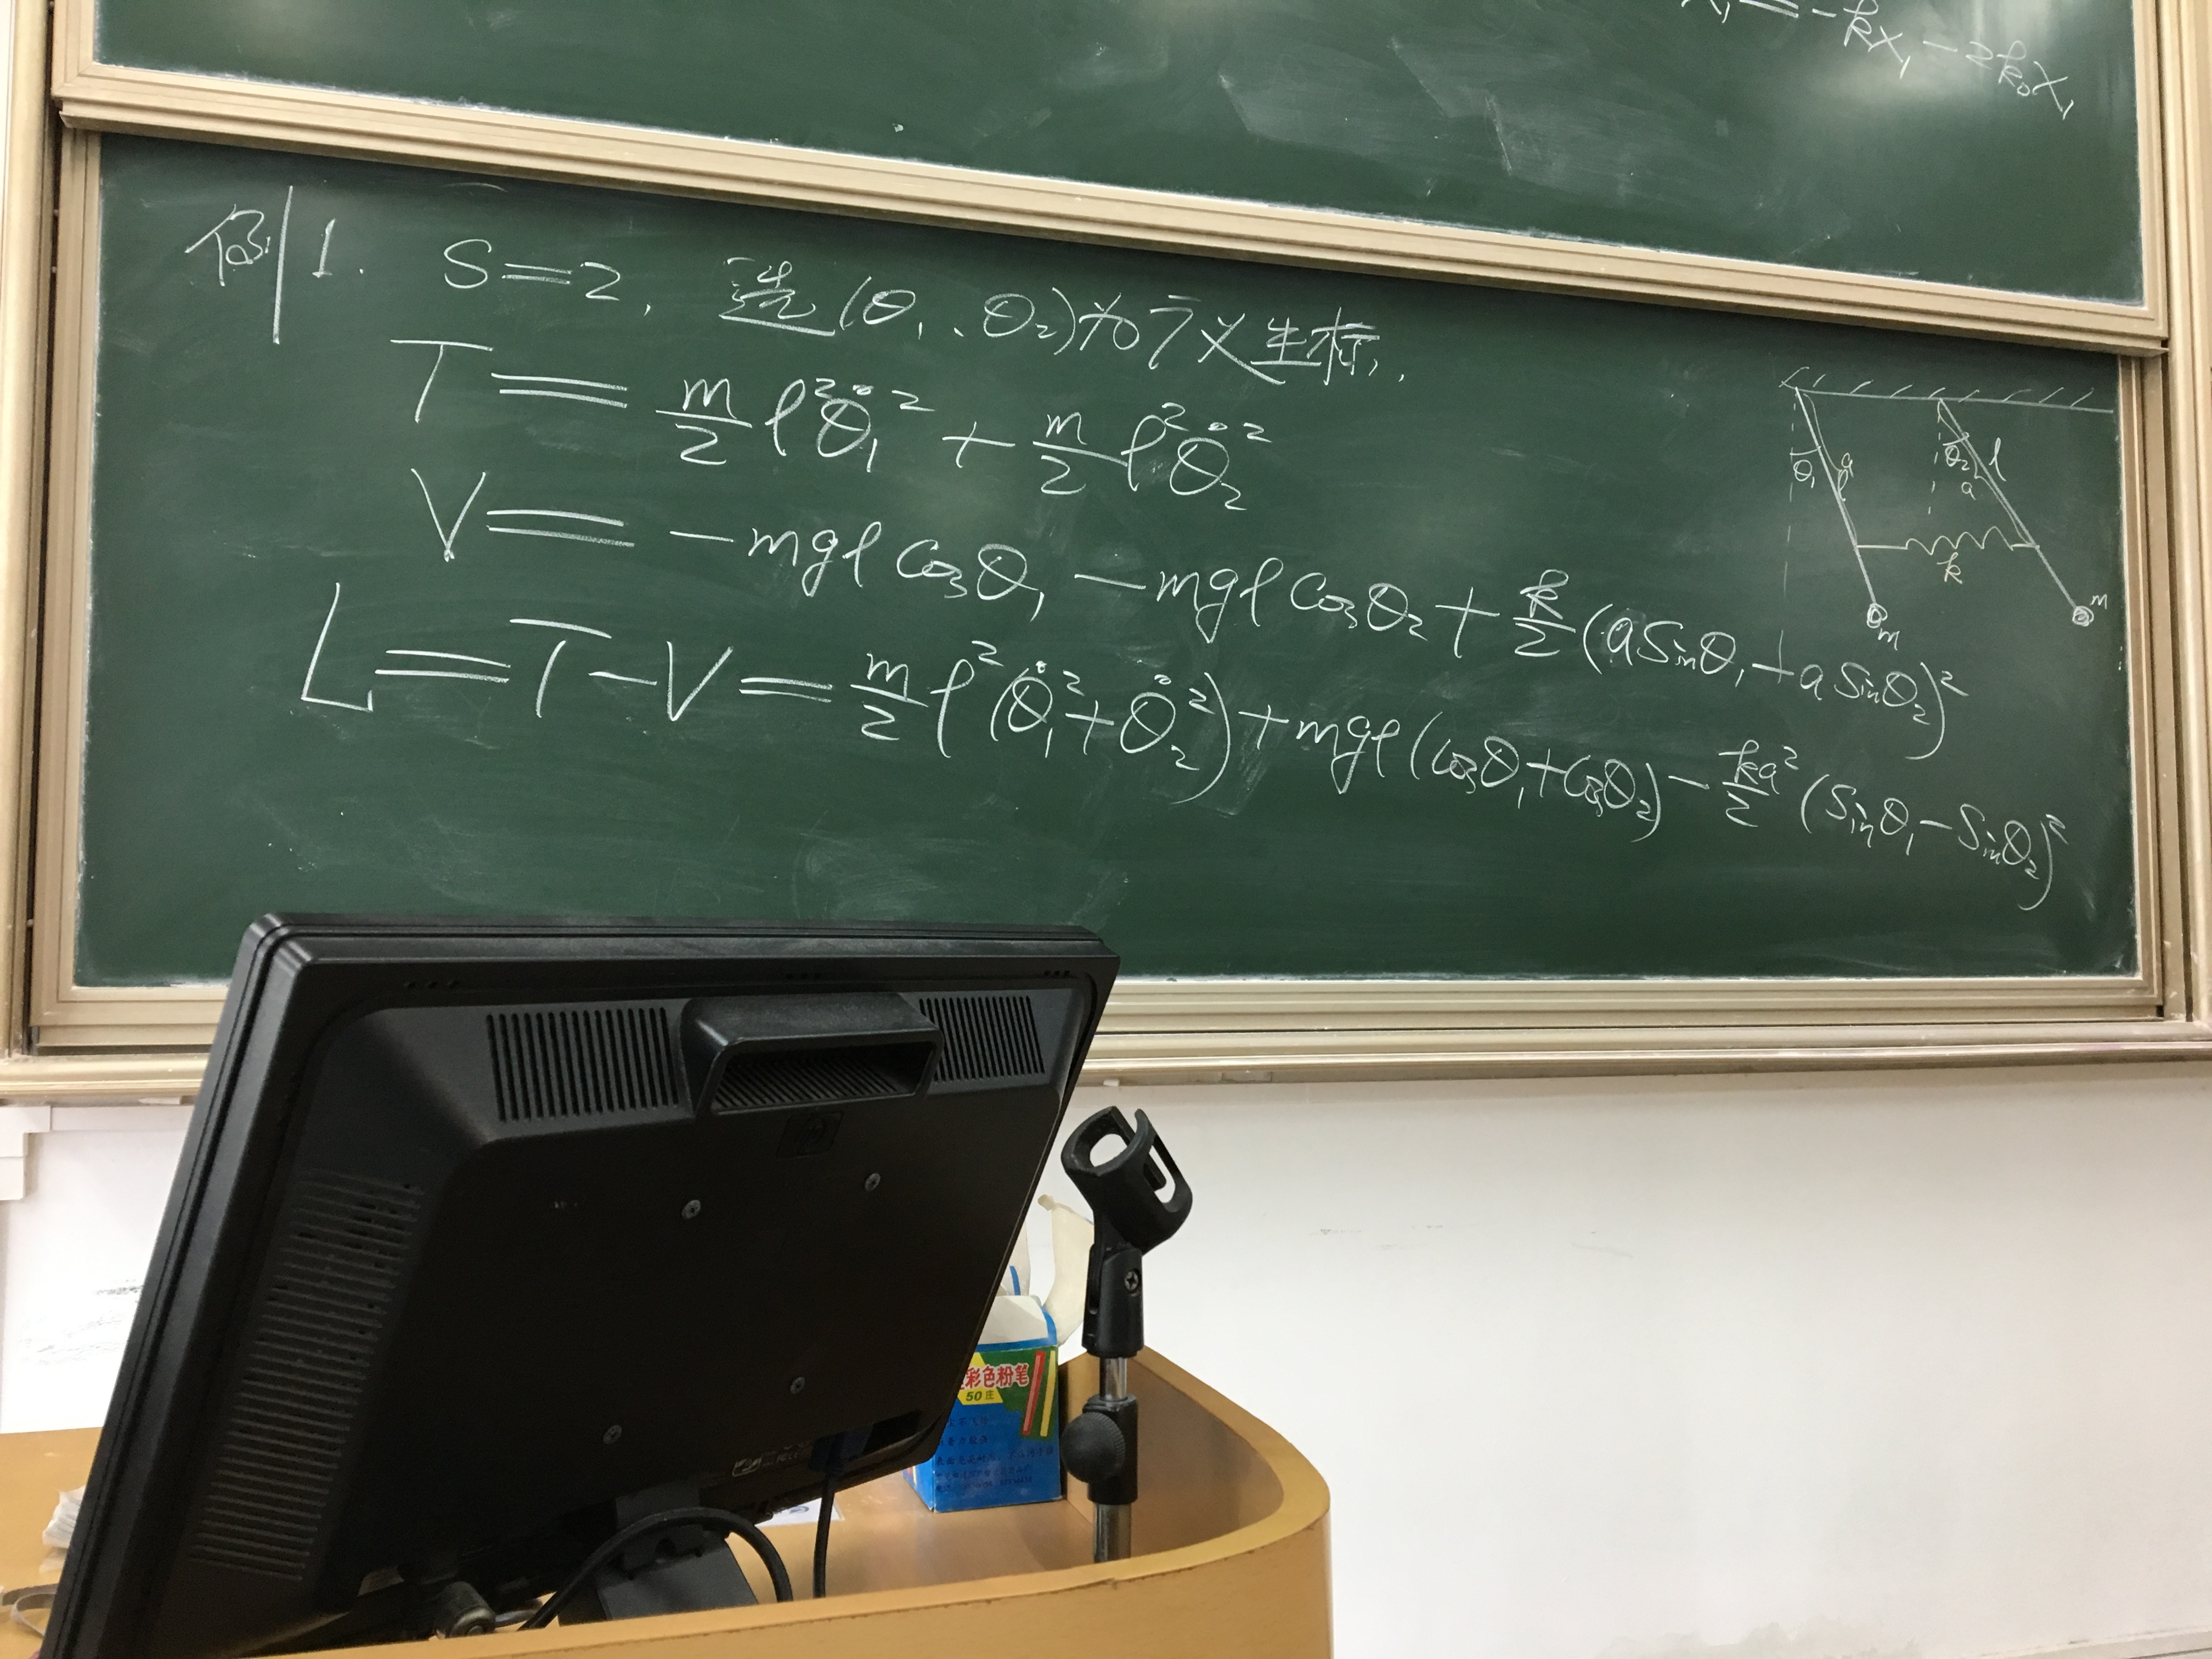 X₁ = -kX₁ - 2k₀X₁
例1. S=2, 选(θ₁、θ₂)为广义坐标,
T = m/2 l²θ̇₁² + m/2 l²θ̇₂²
V = -mgl cosθ₁ - mgl cosθ₂ + k/2 (a sinθ₁ + a sinθ₂)²
L = T - V = m/2 l² (θ̇₁² + θ̇₂²) + mgl (cosθ₁ + cosθ₂) - ka²/2 (sinθ₁ - sinθ₂)²
θ₁ a l
θ₂ l
a
k
m
m
彩色粉笔
50